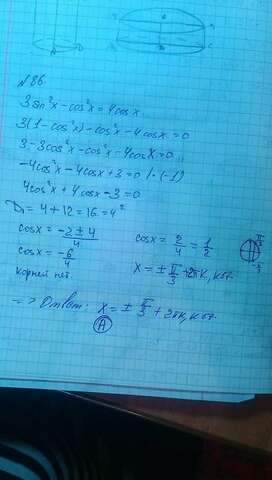 №86.
3sin²x-cos²x=4cosx
3(1-cos²x)-cos²x-4cosx=0
3-3cos²x-cos²x-4cosx=0
-4cos²x-4cosx+3=0 |·(-1)
4cos²x+4cosx-3=0
D₁=4+12=16=4²
cosx=(-2±4)/4 cosx=2/4=1/2
cosx=-6/4 x=±π/3+2πk, k∈z.
корней нет.
=> Ответ: x=±π/3+2πk, k∈z.
A